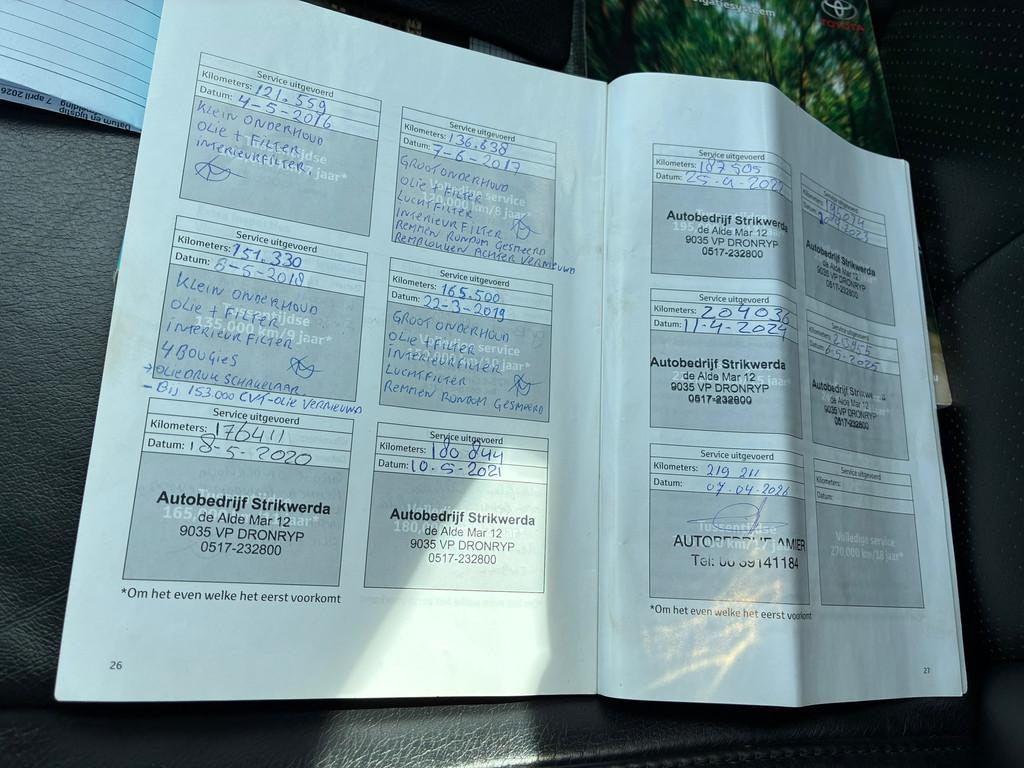 Datum en tijdstip
7 april 2026
TOYOTA
Service uitgevoerd
Kilometers: 121.559
Datum: 4-5-2016
KLEIN ONDERHOUD
OLIE + FILTER
INTERIEURFILTER
Service uitgevoerd
Kilometers: 136.638
Datum: 7-6-2017
GROOT ONDERHOUD
OLIE + FILTER
LUCHTFILTER
INTERIEUR FILTER
REMMEN RONDOM GESMEERD
REMBLOKKEN ACHTER VERNIEUWD
Service uitgevoerd
Kilometers: 151.330
Datum: 8-5-2018
KLEIN ONDERHOUD
OLIE + FILTER
INTERIEUR FILTER
4 BOUGIES
→ OLIEDRUK SCHAKELAAR
- Bij 153.000 CVT-OLIE VERNIEUWD
Service uitgevoerd
Kilometers: 165.500
Datum: 22-3-2019
GROOT ONDERHOUD
OLIE + FILTER
INTERIEURFILTER
LUCHTFILTER
REMMEN RONDOM GESMEERD
Service uitgevoerd
Kilometers: 176411
Datum: 18-5-2020
Autobedrijf Strikwerda
de Alde Mar 12
9035 VP DRONRYP
0517-232800
Service uitgevoerd
Kilometers: 180 844
Datum: 10-5-2021
Autobedrijf Strikwerda
de Alde Mar 12
9035 VP DRONRYP
0517-232800
*Om het even welke het eerst voorkomt
26
Service uitgevoerd
Kilometers: 187505
Datum:
Autobedrijf Strikwerda
de Alde Mar 12
9035 VP DRONRYP
0517-232800
Service uitgevoerd
Kilometers:
Autobedrijf Strikwerda
de Alde Mar 12
9035 VP DRONRYP
0517-232800
Service uitgevoerd
Kilometers: 204036
Datum: 11-4-2024
Autobedrijf Strikwerda
de Alde Mar 12
9035 VP DRONRYP
0517-232800
Service uitgevoerd
Kilometers:
Autobedrijf Strikwerda
de Alde Mar 12
9035 VP DRONRYP
0517-232800
Service uitgevoerd
Kilometers: 219 211
Datum: 07-04-2026
Tussentijdse
Service uitgevoerd
Kilometers:
Datum:
Volledige service
270,000 km/18 jaar*
*Om het even welke het eerst voorkomt
27